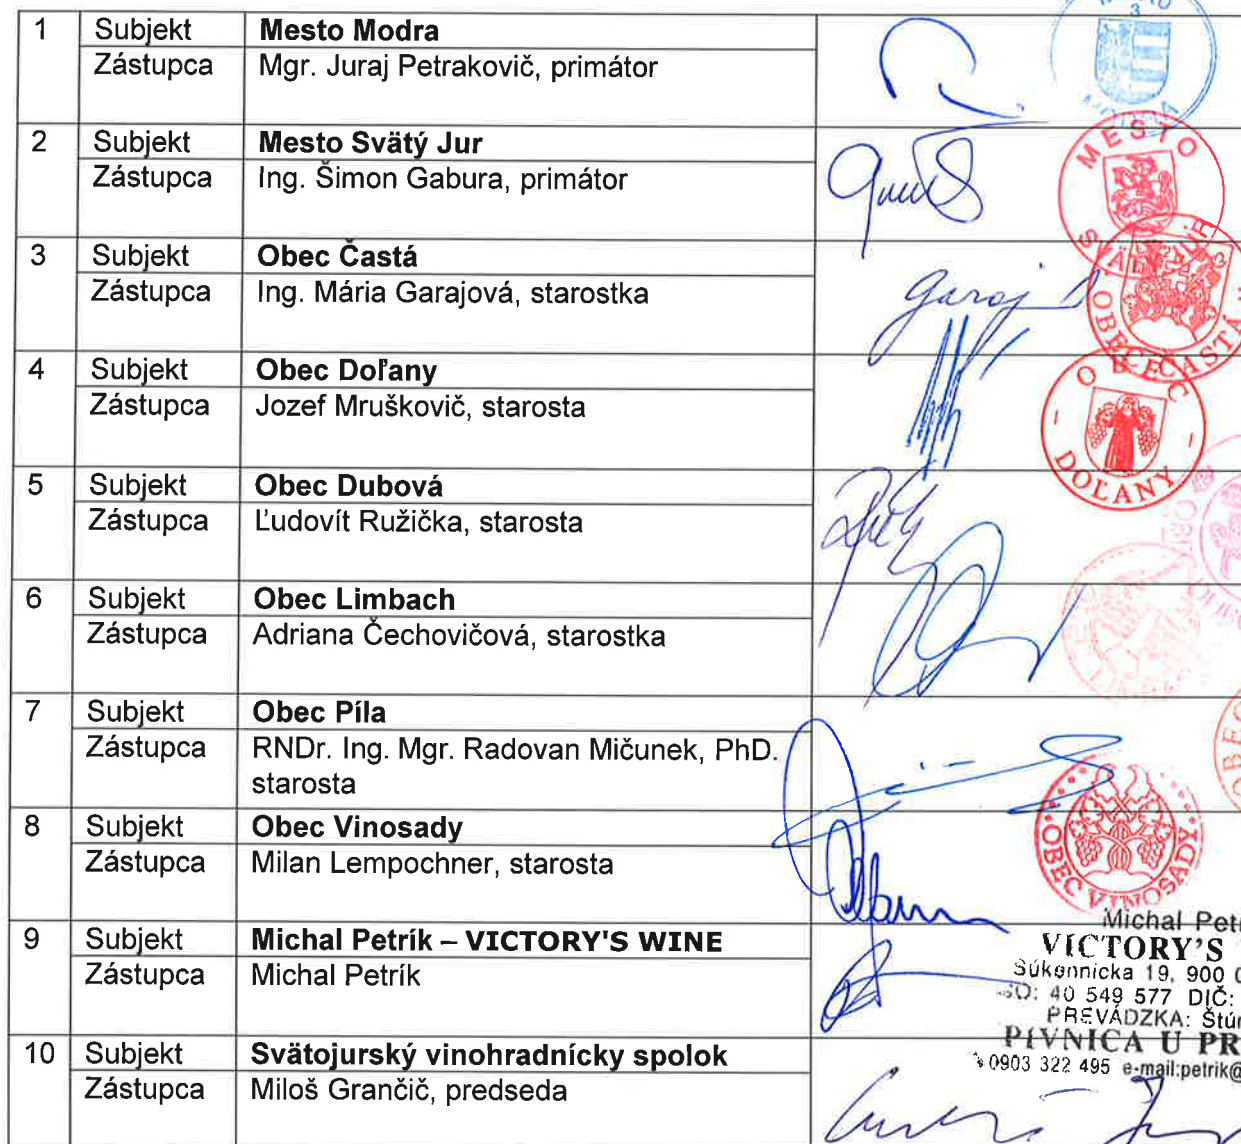 1 Subjekt Mesto Modra
Zástupca Mgr. Juraj Petrakovič, primátor
3
MODRA
2 Subjekt Mesto Svätý Jur
Zástupca Ing. Šimon Gabura, primátor
MESTO
3 Subjekt Obec Častá
Zástupca Ing. Mária Garajová, starostka
OBEC ČASTÁ
4 Subjekt Obec Doľany
Zástupca Jozef Mruškovič, starosta
OBEC
DOĽANY
5 Subjekt Obec Dubová
Zástupca Ľudovít Ružička, starosta
6 Subjekt Obec Limbach
Zástupca Adriana Čechovičová, starostka
7 Subjekt Obec Píla
Zástupca RNDr. Ing. Mgr. Radovan Mičunek, PhD.
starosta
OBEC
8 Subjekt Obec Vinosady
Zástupca Milan Lempochner, starosta
OBEC VINOSADY
9 Subjekt Michal Petrík – VICTORY'S WINE
Zástupca Michal Petrík
Michal Pet
VICTORY'S
Súkennícka 19, 900
40 549 577 DIČ:
PREVÁDZKA: Štúr
PIVNICA U PR
0903 322 495 e-mail:petrik@
10 Subjekt Svätojurský vinohradnícky spolok
Zástupca Miloš Grančič, predseda